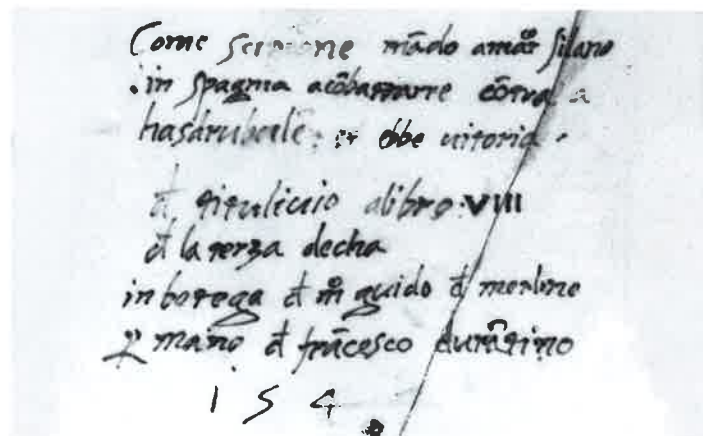 Come scipione mãdo amar silano
in spagnia acõbattarre cõtra a
hasdrubale: et ebbe uitoria .
đ titulivio alibro: VIII
đ la terza decha
in botega đ mº guido đ merlino
ꝑ mano đ frãcesco durãtino
1 5 4